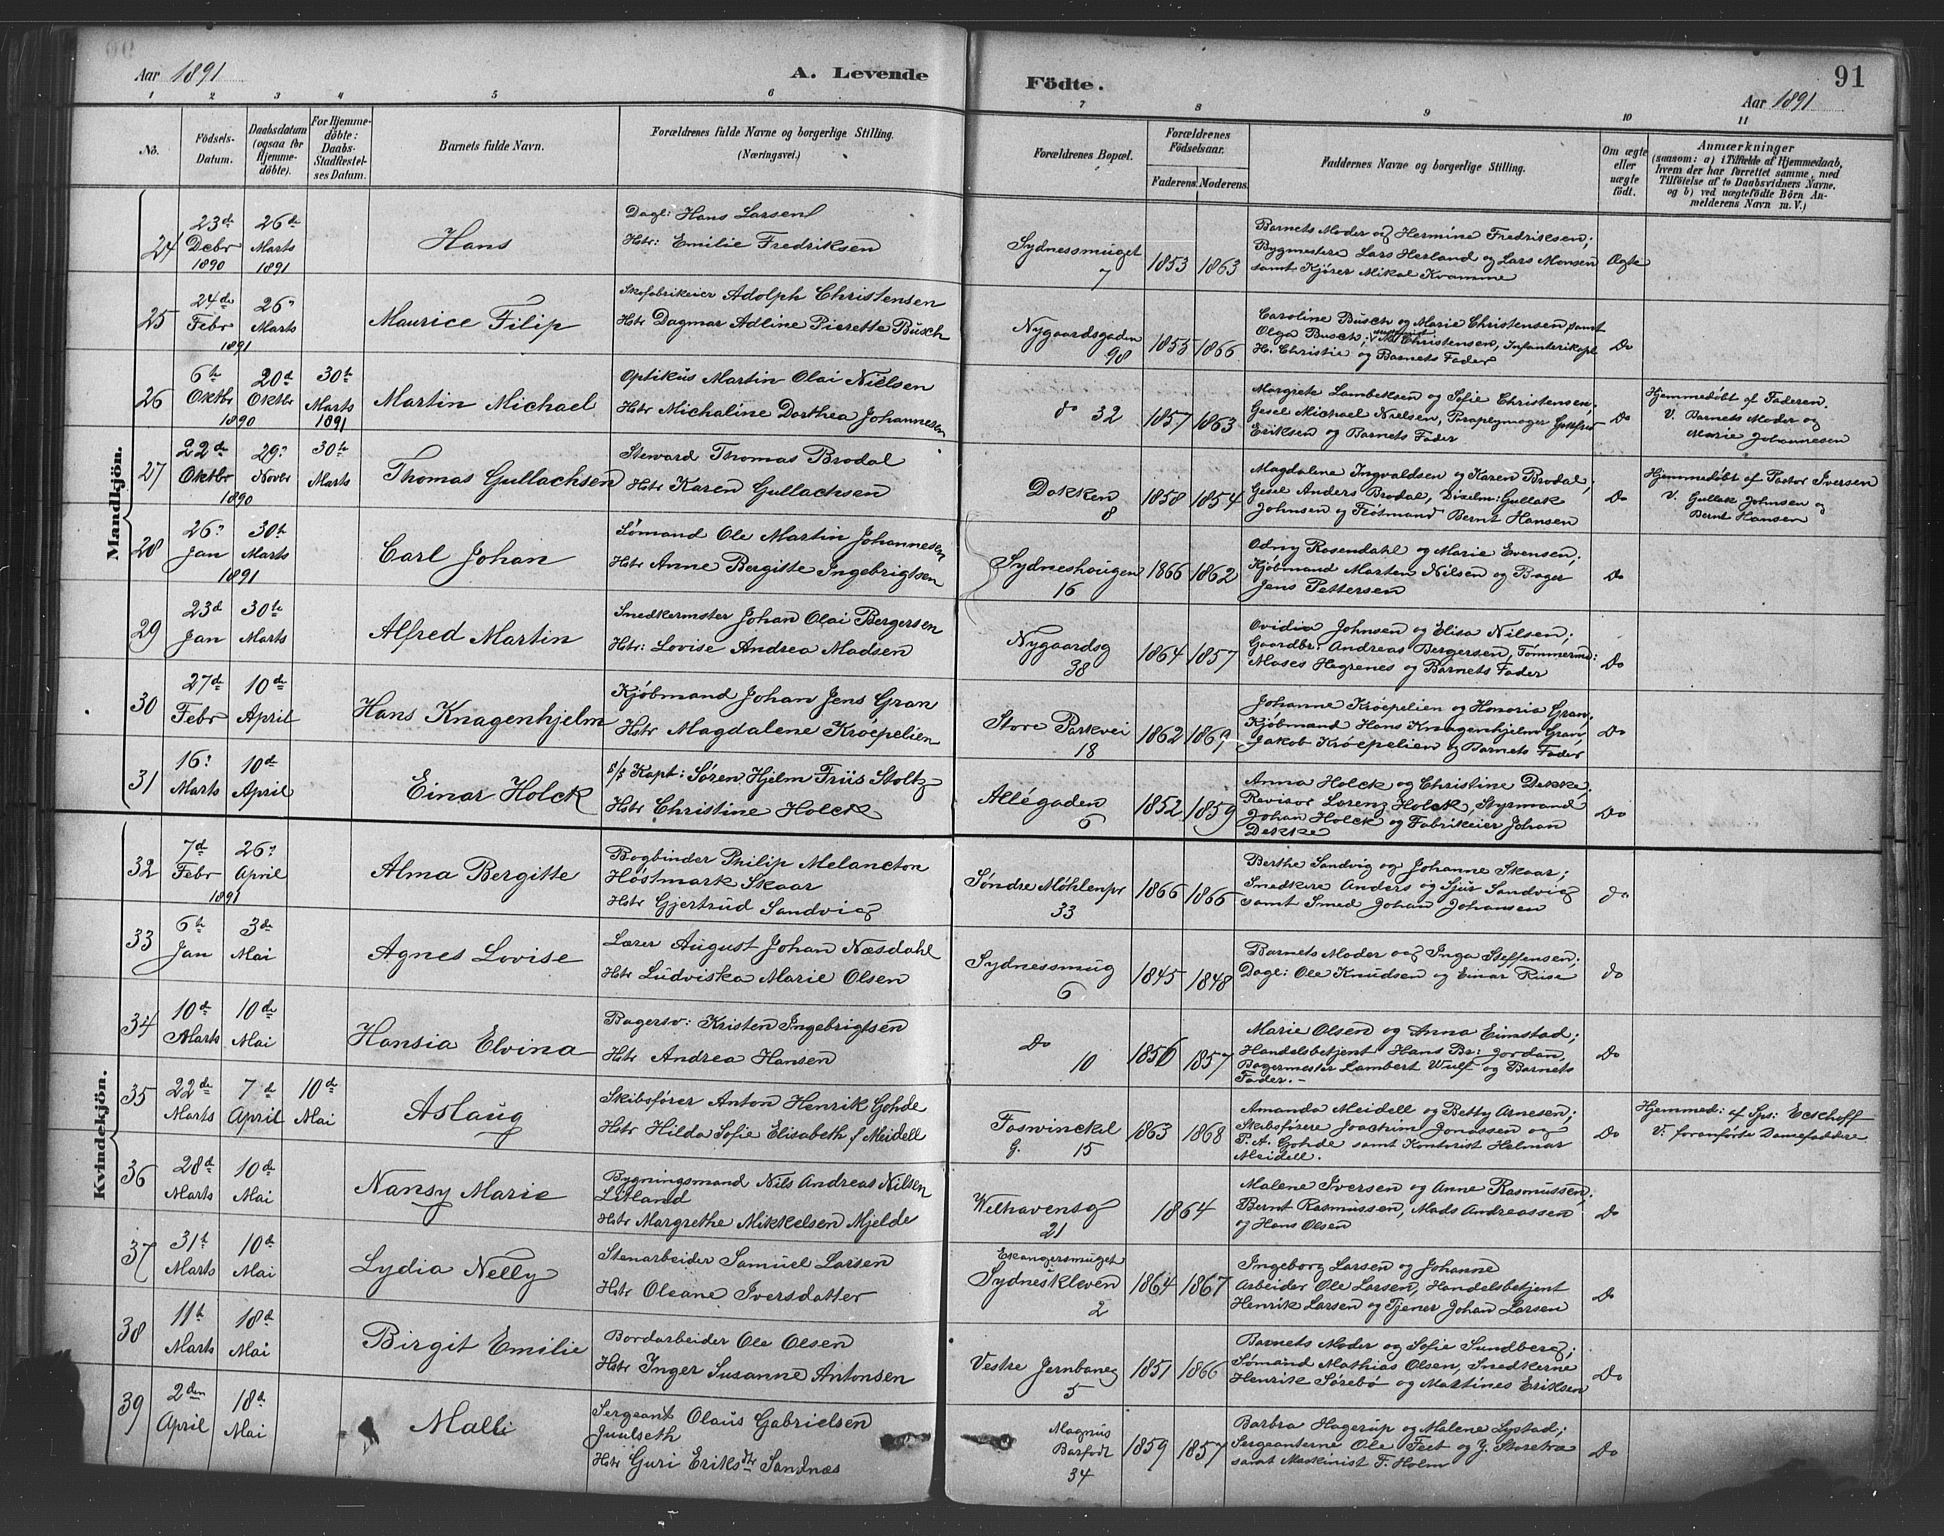 Aar 1891
A. Levende
Födte.
Aar 1891
91
1 2 3 4 5 6 7 8 9 10 11
No.
Födsels-
Datum.
Daabsdatum
(ogsaa for
Hjemme-
döbte).
For Hjemme-
döbte:
Daabs-
Stadfæstel-
ses Datum.
Barnets fulde Navn.
Forældrenes fulde Navne og borgerlige Stilling.
(Næringsvei.)
Forældrenes Bopæl.
Forældrenes
Födselsaar.
Faderens. Moderens.
Faddernes Navne og borgerlige Stilling.
Om ægte
eller
uægte
födt.
Anmærkninger
(saasom: a) i Tilfælde af Hjemmedaab,
hvem der har forrettet samme, med
Tilföielse af to Daabsvidners Navne,
og b) ved uægtefödte Börn An-
melderens Navn m. V.)
Mandkjön.
24
23d Debr 1890
26d Marts 1891
Hans
Dagl: Hans Larsen
Hstr: Emilie Fredriksen
Sydnessmuget
7
1853 1863
Barnets Moder og Hermine Fredriksen;
Bygmestere Lars Herland og Lars Monsen
samt Kjører Mikal Kvamme
Ægte
25
24de Febr 1891
26' Marts
Maurice Filip
Skofabrikeier Adolph Christensen
Hstr Dagmar Adline Pierette Busch
Nygaardsgaden
98
1855 1866
Caroline Busch og Marie Christensen, samt
Olga Busch; Christensen, Infanterikapt
H. Christie og Barnets Fader
Do
26
6te Oktbr 1890
20d Oktbr
30te Marts 1891
Martin Michael
Optikus Martin Olai Nielsen
Hstr Michaline Dorthea Johannesen
do 32
1857 1863
Margrete Lambeksen og Sofie Christensen;
Gesel Michael Nielsen, Paraplymager
Eriksen og Barnets Fader
Do
Hjemmedøbt af Faderen.
V. Barnets Moder og
Marie Johannesen
27
22d Oktbr 1890
29' Novbr
30te Marts
Thomas Gullachsen
Steward Thomas Brodal
Hstr Karen Gullachsen
Dokken
8
1858 1854
Magdalene Ingvaldsen og Karen Brodal;
Gesel Anders Brodal, Gullak
Johnsen og Bernt Hansen
Do
Hjemmedøbt af Pastor Iversen
V. Gullak Johnsen og
Bernt Hansen
28
26' Jan 1891
30te Marts
Carl Johan
Sømand Ole Martin Johannesen
Hstr Anne Bergitte Ingebrigtsen
Sydneshougen
16
1866 1862
Odny Rosendahl og Marie Evensen;
Kjøbmand Marten Nilsen og Bager
Jens Pettersen
Do
29
23d Jan
30te Marts
Alfred Martin
Snedkermster Johan Olai Bergersen
Hstr: Lovise Andrea Madsen
Nygaardsg
38
1864 1857
Ovidia Johnsen og Elisa Nilsen;
Gaardbr: Andreas Bergersen, Tømmermd:
Moses Hegrenes og Barnets Fader
Do
30
27de Febr
10de April
Hans Knagenhjelm
Kjøbmand Johan Jens Gran
Hstr Magdalene Krøepelien
Store Parkvei
18
1862 1869
Johanne Krøepelien og Honoria Gran,
Kjøbmand Hans Knagenhjelm Gran,
Jakob Krøepelien og Barnets Fader
Do
31
16' Marts
10de April
Einar Holck
S/S Kapt: Søren Hjelm Friis Stoltz
Hstr Christine Holck
Allégaden
6
1852 1859
Anna Holck og Christine Dekke.
Revisor Lorenz Holck, Styrmand
Johan Holck og Fabrikeier Johan
Dekke
Do
Kvindekjön.
32
7d Febr 1891
26' April
Alma Bergitte
Bogbinder Philip Melancton
Hostmark Skaar
Hstr Gjertrud Sandvig
Søndre Møhlenpr
33
1866 1866
Berthe Sandvig og Johanne Skaar;
Snedkere Anders og Sjur Sandvig
samt Smed Johan Johansen
do
33
6te Jan
3de Mai
Agnes Lovise
Lærer August Johan Næsdahl
Hstr Ludviska Marie Olsen
Sydnessmug
6
1845 1848
Barnets Moder og Inga Steffensen;
Dagl: Ole Knudsen og Einar Riise
do
34
10de Marts
10de Mai
Hansia Elvina
Bagersv: Kristen Ingebrigtsen
Hstr Andrea Hansen
Do
10
1856 1857
Marie Olsen og Anna Eimstad;
Handelsbetjent Hans Br: Jordan,
Bagermester Lambert Wulf og Barnets
Fader.-
Do
35
22de Marts
7de April
10de Mai
Aslaug
Skibsfører Anton Henrik Gohde
Hstr Hilda Sofie Elisabeth f Meidell
Foswinckel
G. 15
1863 1868
Amanda Meidell og Betty Arnesen;
Skibsførere Joachim Jonassen og
P. A. Gohde samt Kontorist Helmar
Meidell.
Do
Hjemmed: af Spr: Eckhoff
V. foranførte Damefaddere
36
28de Marts
10de Mai
Nansy Marie
Bygningsmand Nils Andreas Nilsen
Litland
Hstr Margrethe Mikkelsen Mjelde
Welhavensg
21
1864
Malene Iversen og Anne Rasmussen;
Bernt Rasmussen, Mads Andreassen
og Hans Olsen
Do
37
31te Marts
10de Mai
Lydia Nelly
Stenarbeider Samuel Larsen
Hstr Oleane Iversdatter
Eskangersmuget
Sydneskleven
2
1864 1867
Ingeborg Larsen og Johanne
Arbeider Ole Larsen, Handelsbetjent
Henrik Larsen og Tjener Johan Larsen
Do
38
11te Marts
18de Mai
Birgit Emilie
Bordarbeider Ole Olsen
Hstr Inger Susanne Antonsen
Vestre Jernbaneg
5
1851 1866
Barnets Moder og Sofie Sundberg;
Sømand Mathias Olsen, Snedkerne
Henrik Sørebø og Martines Eriksen
Do
39
2den April
18de Mai
Malli
Sergeant Olaus Gabrielsen
Juulseth
Hstr Guri Eriksdtr Sandnæs
Magnus
Barfodt
34
1859 1857
Barbra Hagerup og Malene Lystad;
Sergeanterne Ole Feet og J. Storetræ
samt Maskinist F. Holm
Do